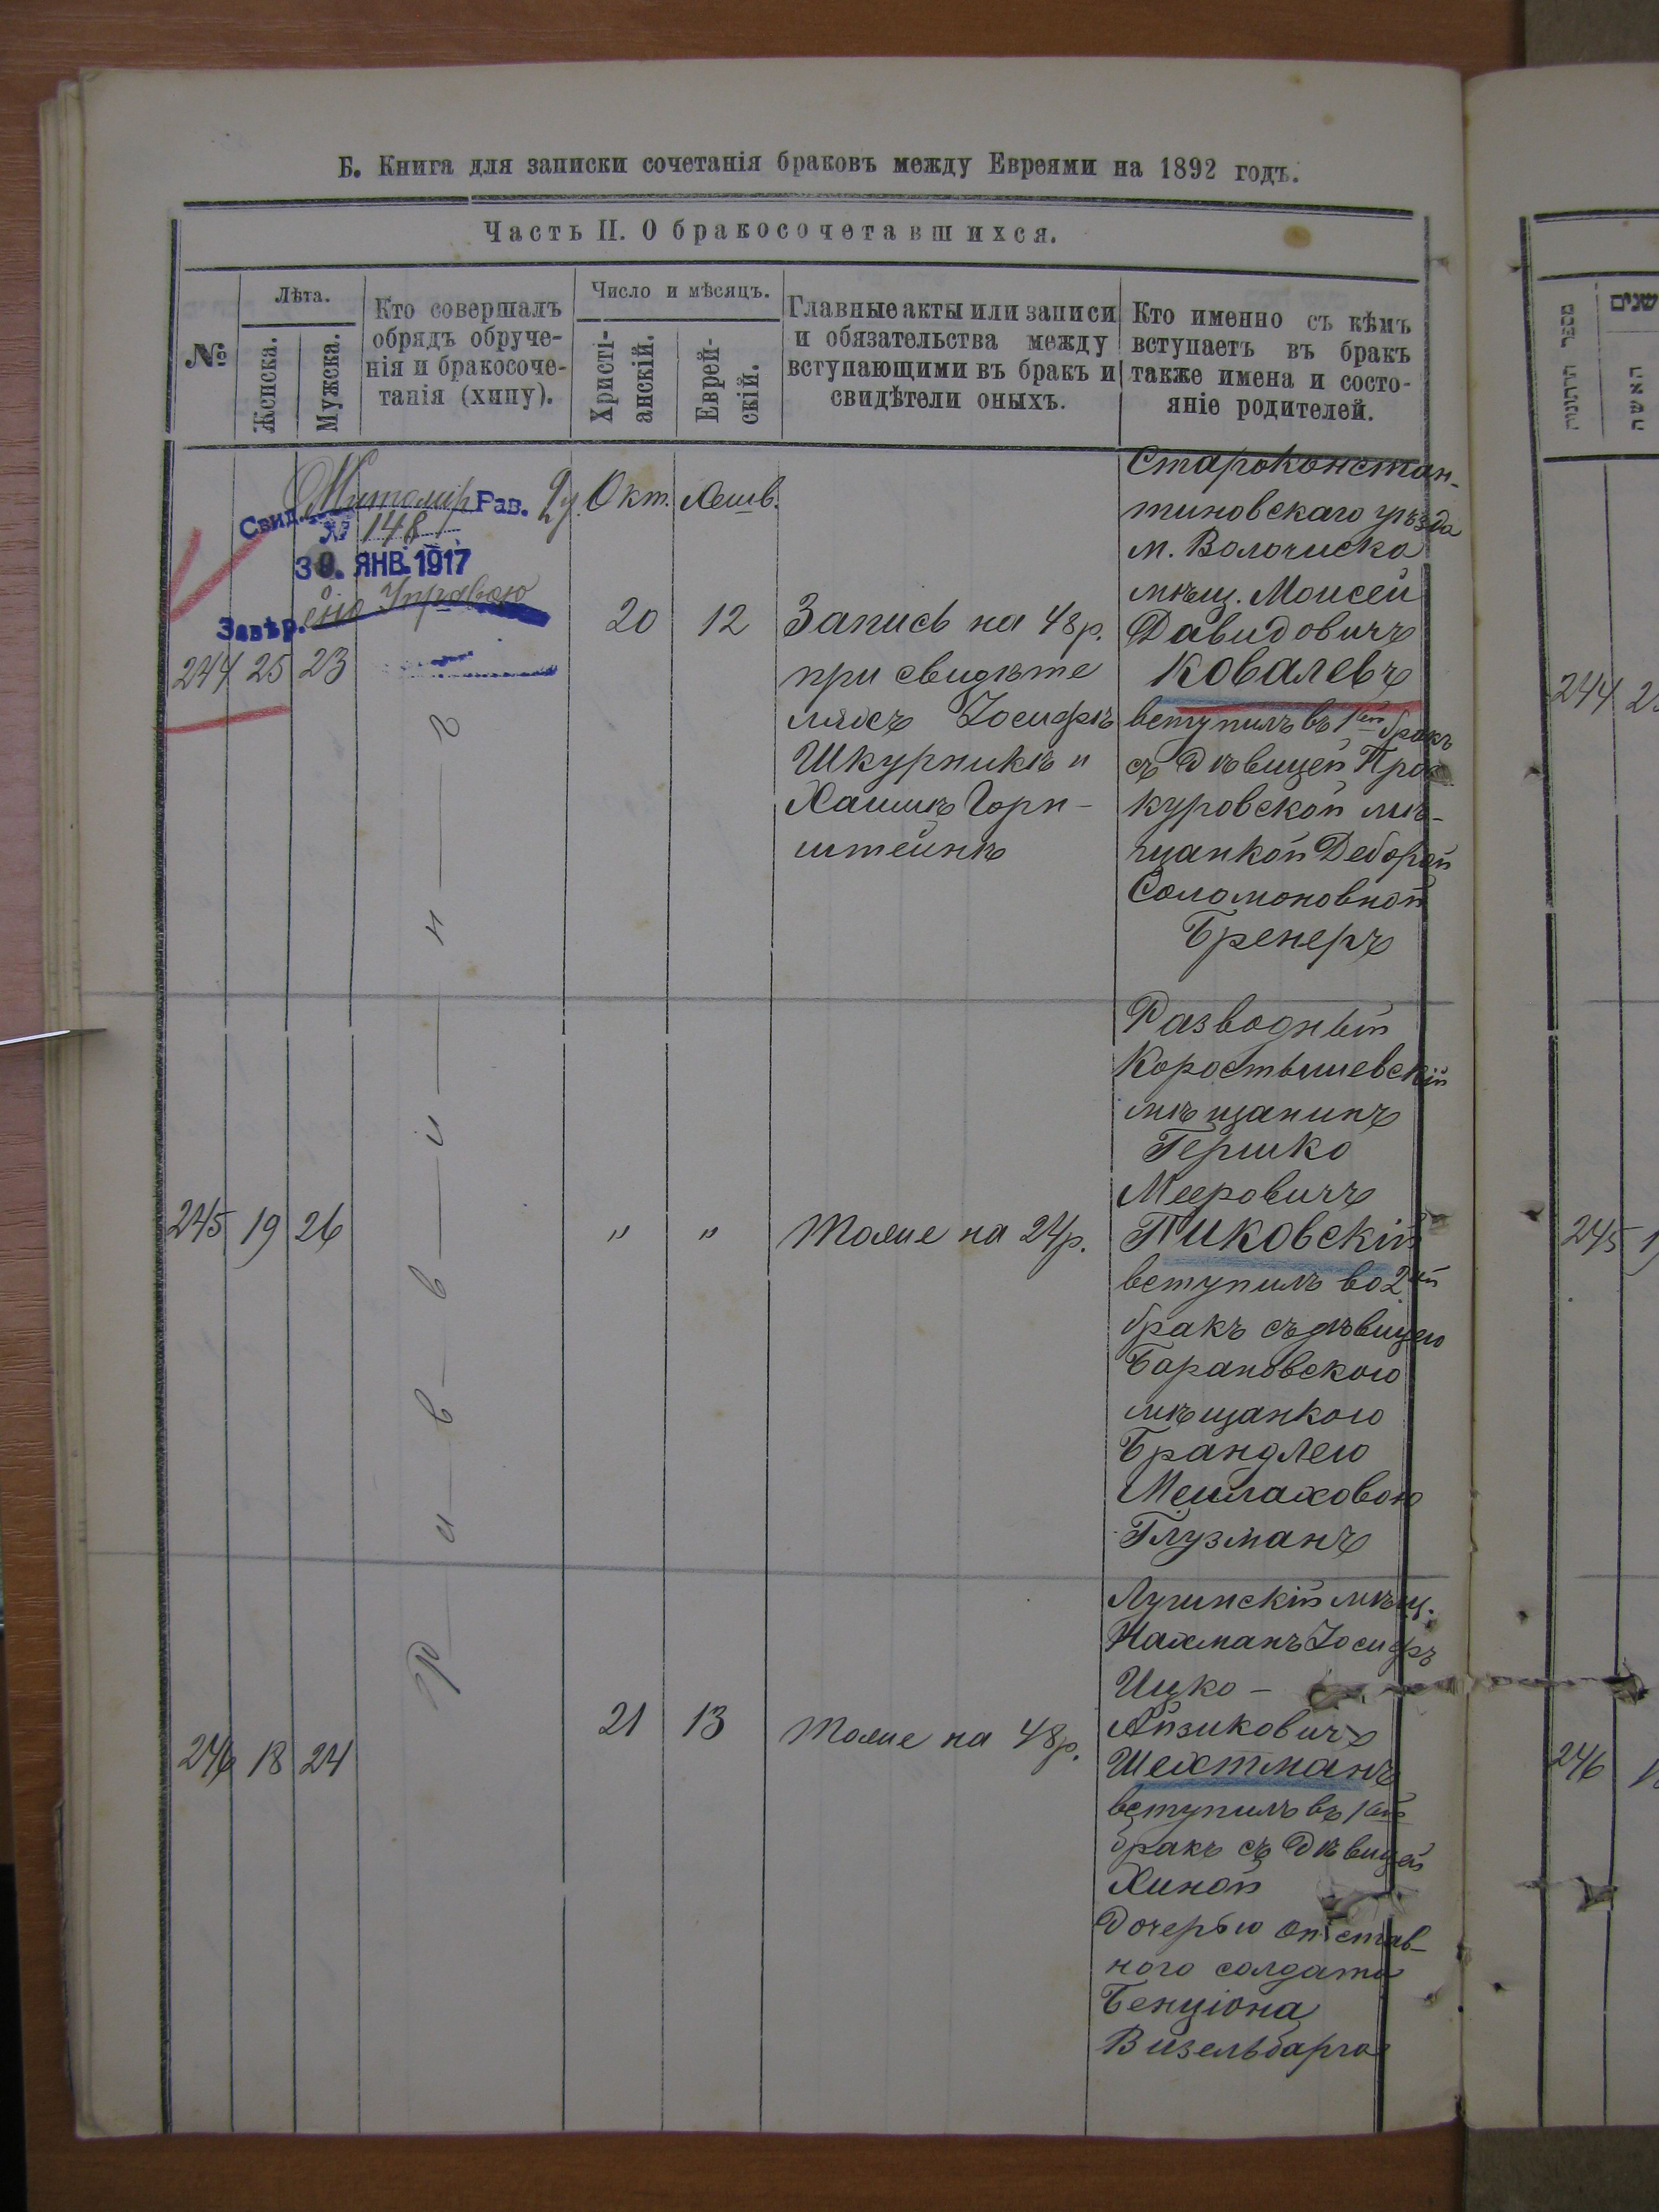 Б. Книга для записки сочетанія браковъ между Евреями на 1892 годъ.
Часть II. О бракосочетавшихся.
№
Лѣта.
Женска.
Мужска.
Кто совершалъ
обрядъ обруче-
нія и бракосоче-
танія (хипу).
Число и мѣсяцъ.
Христі-
анскій.
Еврей-
скій.
Главные акты или записи
и обязательства между
вступающими въ бракъ и
свидѣтели оныхъ.
Кто именно съ кѣмъ
вступаетъ въ бракъ
также имена и состо-
яніе родителей.
Свид. Житомір Рав.
№ 148
30. ЯНВ. 1917
Завѣр. Управою
Окт.
Хешв.
244
25
23
20
12
Запись на 48 р.
при свидѣте
ляхъ Іосифѣ
Шкурникѣ и
Хаимѣ Горн-
штейнѣ
Староконстан-
тиновскаго уѣзда
м. Волочиска
мѣщ. Моисей
Давидовичъ
Ковалевъ
вступилъ въ 1ый бракъ
съ дѣвицей Прос
куровской мѣ-
щанкой Деборой
Соломоновной
Бренеръ
245
19
26
"
"
Тоже на 24 р.
Разводный
Коростышевскій
мѣщанинъ
Гершко
Мееровичъ
Пиковскій
вступилъ во 2ый
бракъ съ дѣвицею
Барановскою
мѣщанкою
Брандлею
Меилаховою
Глузманъ
Р-и-в-в-и-н-г
246
18
24
21
13
Тоже на 48 р.
Лугинскій мѣщ.
Нахманъ Іосифъ
Ицко-
Айзиковичъ
Шехтманъ
вступилъ въ 1ый
бракъ съ дѣвицей
Хиной
дочерью отстав-
ного солдата
Бенціона
Визельбарга
מספר
שנים
האשה
244
245
246